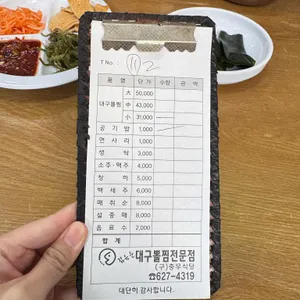 T No :
품 명 단 가 수량 금 액
大 50,000
대구뽈찜 中 43,000
小 31,000
공 기 밥 1,000
면 사 리 1,000
생 탁 3,000
소주·맥주 4,000
청 하 5,000
백 세 주 6,000
매 취 순 8,000
설 중 매 8,000
음 료 수 2,000
합 계
대구뽈찜전문점
(구)충무식당
☎627-4319
대단히 감사합니다.